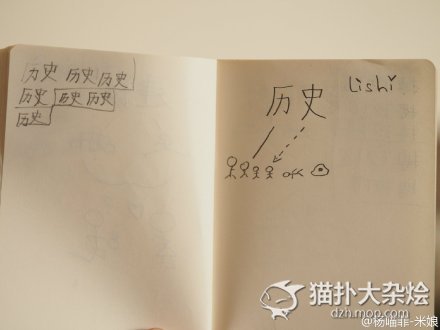 历史 历史 历史
历史 历史 历史
历史
历史
Lishi
猫扑大杂烩
dzh.mop.com
@杨喵菲-米娘